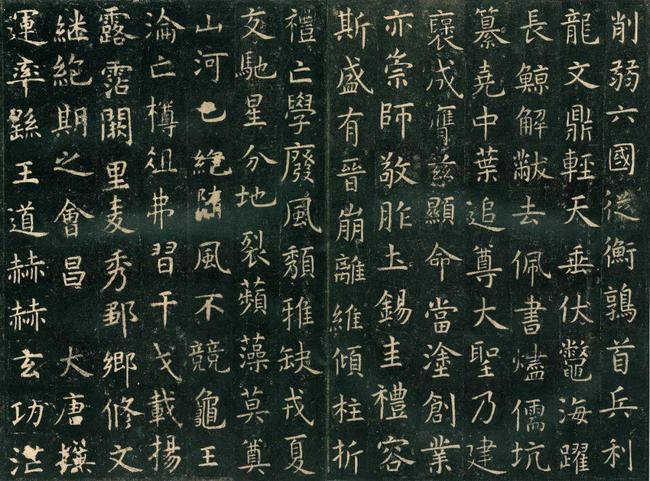 削弱六國從衡鶉首兵利
龍文鼎輕天垂伏鼈海躍
長鯨解黻去佩書燼儒坑
纂堯中葉追尊大聖乃建
襃成膺兹顯命當塗創業
亦崇師敬胙土錫圭禮容
斯盛有晉崩離維傾柱折
禮亡學廢風頽雅缺戎夏
交馳星分地裂蘋藻莫奠
山河已絶隋風不競龜玉
淪亡樽俎弗習干戈載揚
露霑闕里麦秀鄹鄉脩文
継絶期之會昌 大唐撫
運率繇王道赫赫玄功茫